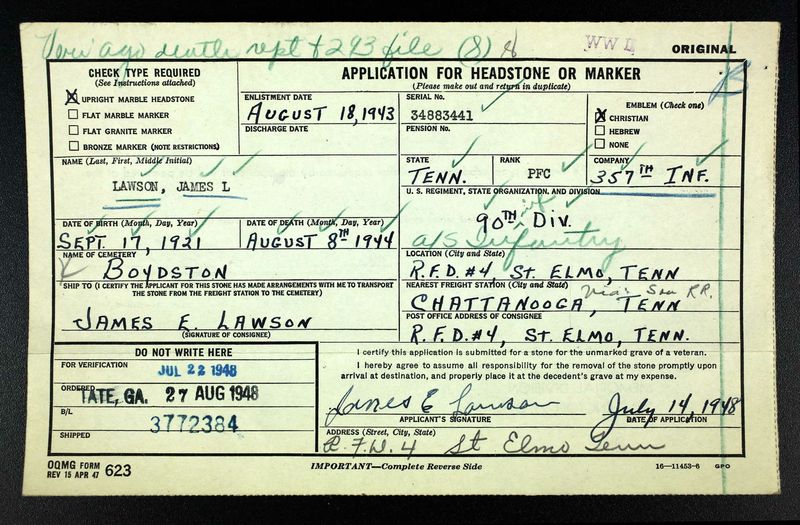 Veri ago death rept + 293 file (8) 8
WW II
ORIGINAL
CHECK TYPE REQUIRED
(See Instructions attached)
X UPRIGHT MARBLE HEADSTONE
FLAT MARBLE MARKER
FLAT GRANITE MARKER
BRONZE MARKER (NOTE RESTRICTIONS)
APPLICATION FOR HEADSTONE OR MARKER
(Please make out and return in duplicate)
ENLISTMENT DATE
AUGUST 18, 1943
DISCHARGE DATE
SERIAL No.
34883441
PENSION No.
EMBLEM (Check one)
X CHRISTIAN
HEBREW
NONE
B
NAME (Last, First, Middle Initial)
LAWSON, JAMES L
STATE
TENN.
RANK
PFC
COMPANY
357TH INF.
U. S. REGIMENT, STATE ORGANIZATION, AND DIVISION
90TH inf DIV.
a/S Infantry
DATE OF BIRTH (Month, Day, Year)
SEPT. 17, 1921
DATE OF DEATH (Month, Day, Year)
AUGUST 8TH 1944
NAME OF CEMETERY
BOYDSTON
LOCATION (City and State)
R.F.D. #4, ST. ELMO, TENN
SHIP TO (I CERTIFY THE APPLICANT FOR THIS STONE HAS MADE ARRANGEMENTS WITH ME TO TRANSPORT
THE STONE FROM THE FREIGHT STATION TO THE CEMETERY)
JAMES E. LAWSON
(SIGNATURE OF CONSIGNEE)
NEAREST FREIGHT STATION (City and State)
via: Sou RR.
CHATTANOOGA, TENN
POST OFFICE ADDRESS OF CONSIGNEE
R.F.D. #4, ST. ELMO, TENN.
DO NOT WRITE HERE
FOR VERIFICATION
JUL 22 1948
ORDERED
TATE, GA. 27 AUG 1948
B/L
3772384
SHIPPED
I certify this application is submitted for a stone for the unmarked grave of a veteran.
I hereby agree to assume all responsibility for the removal of the stone promptly upon
arrival at destination, and properly place it at the decedent's grave at my expense.
James E Lawson
APPLICANT'S SIGNATURE
July 14, 1948
DATE OF APPLICATION
ADDRESS (Street, City, State)
R.F.D. 4 St Elmo Tenn
OQMG FORM
REV 15 APR 47 623
IMPORTANT—Complete Reverse Side
16—11453-6 GPO